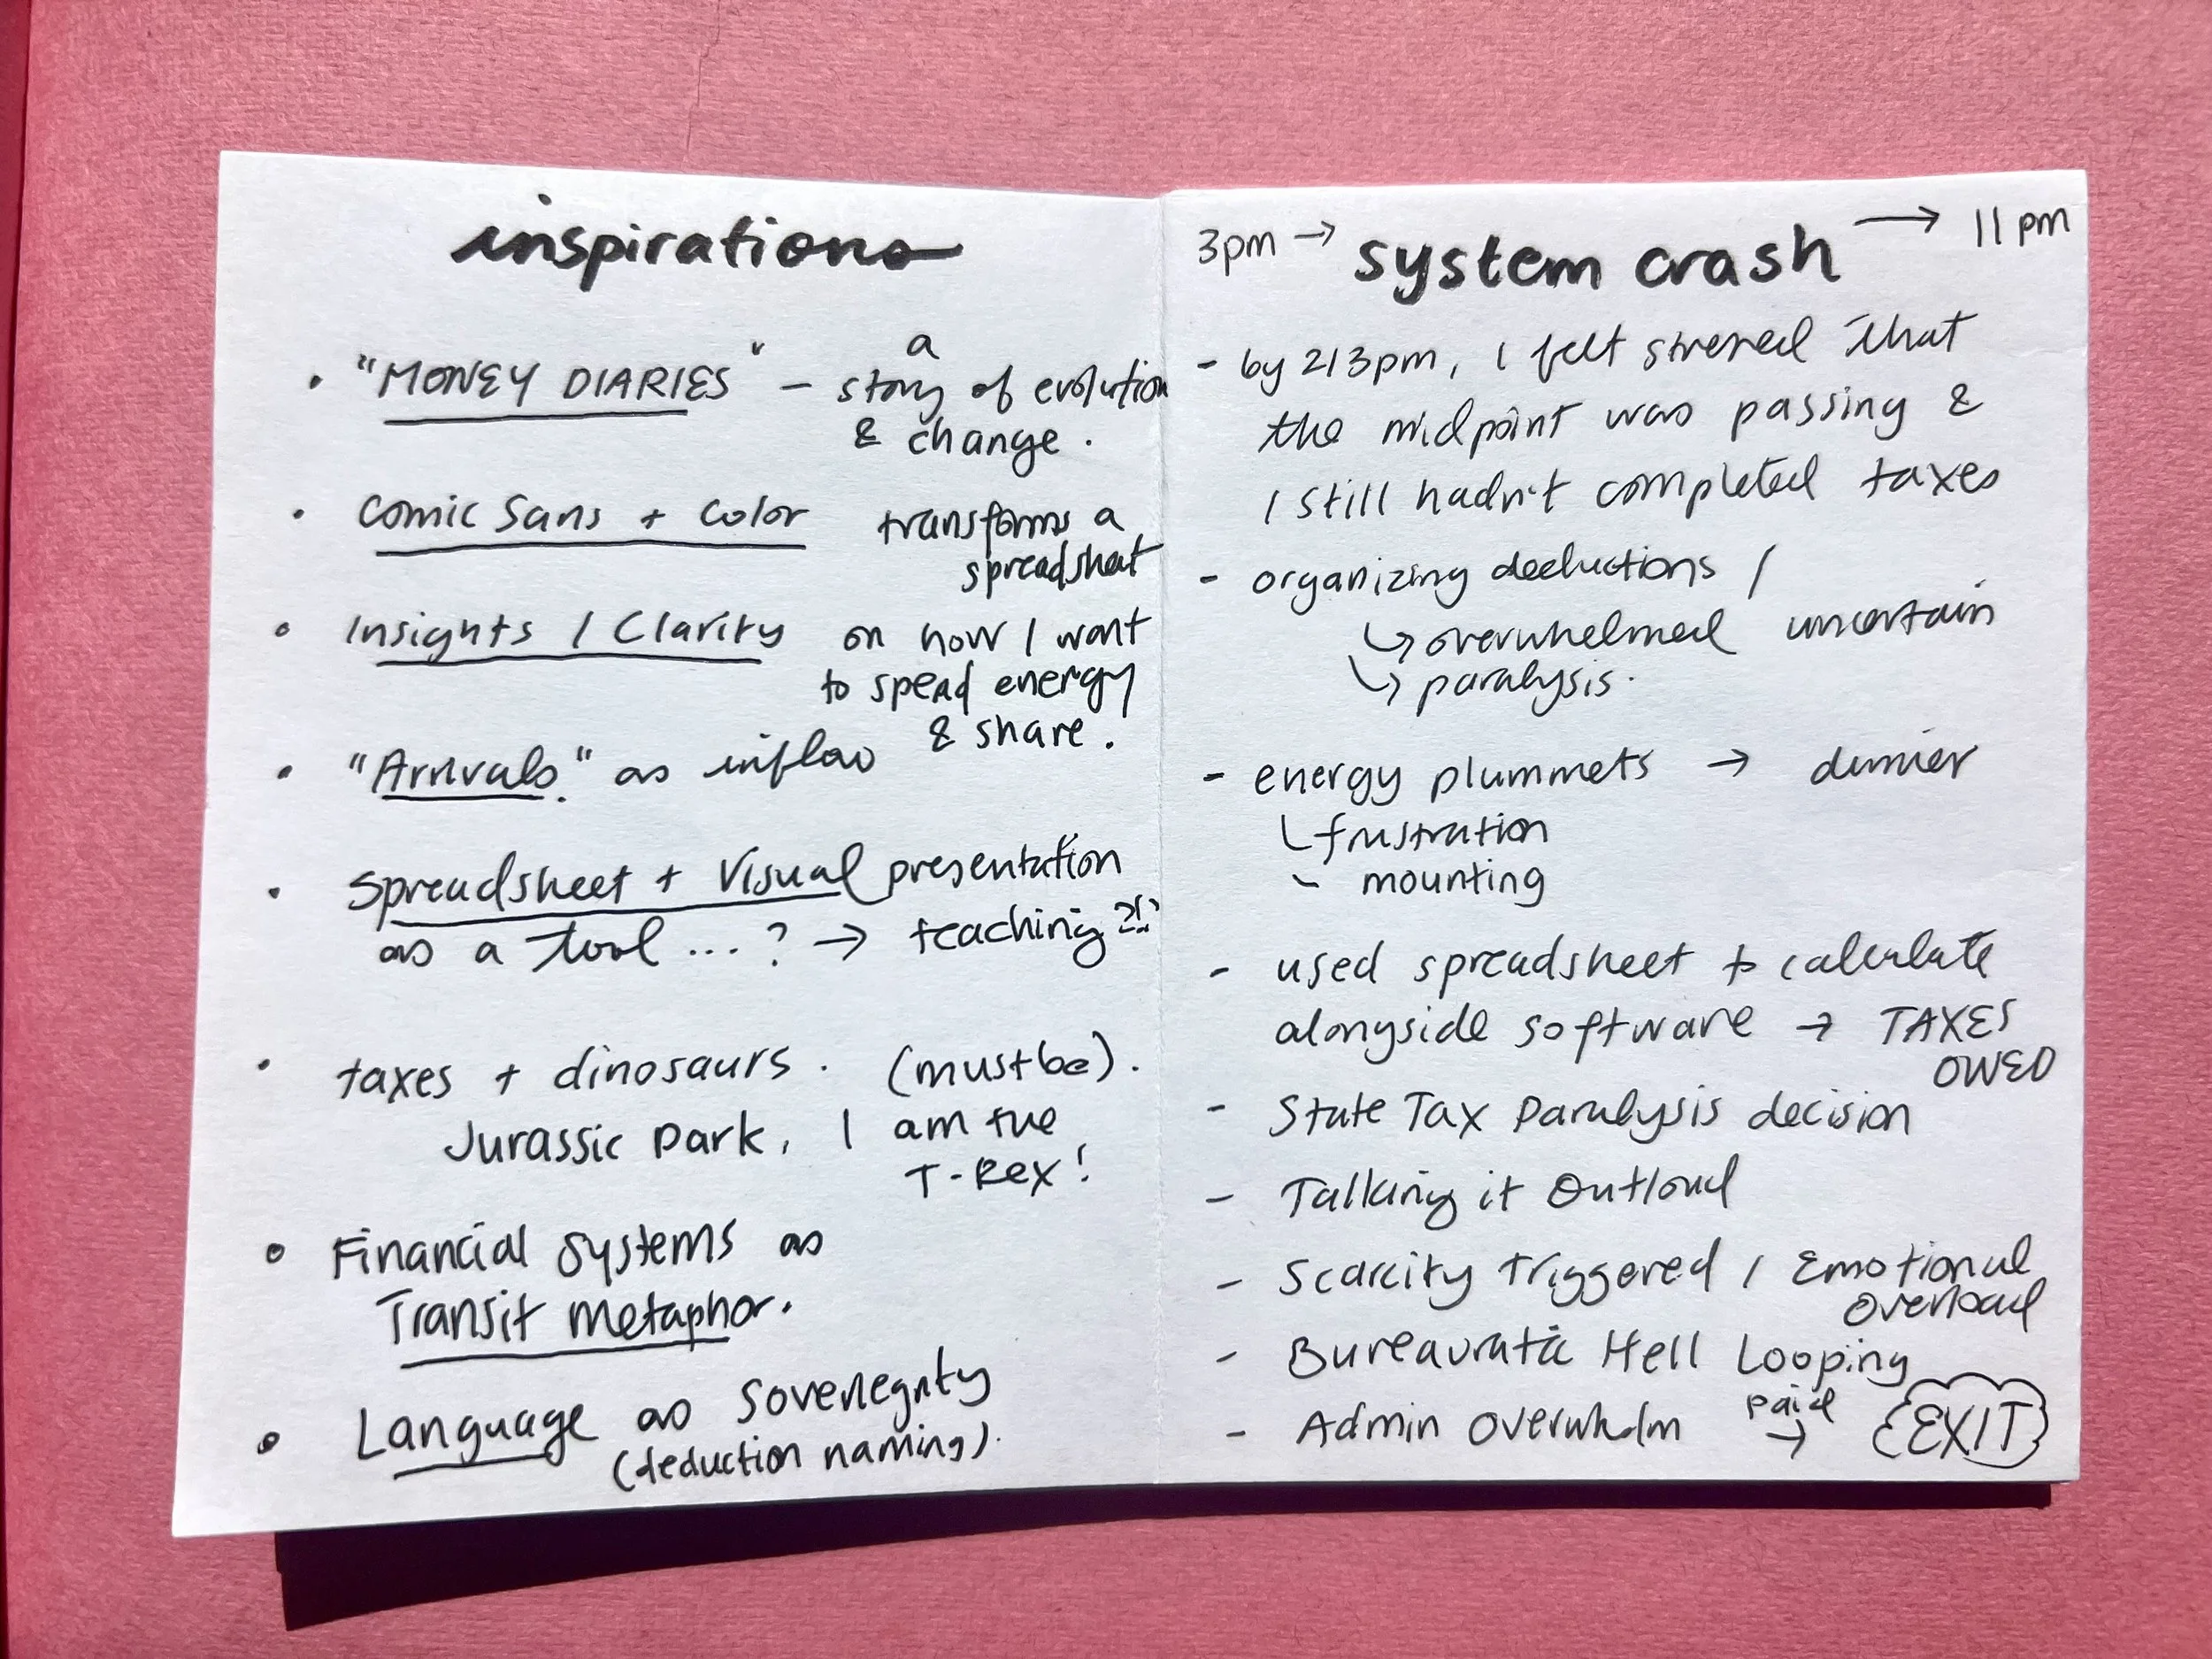 inspirations
• "MONEY DIARIES" — a story of evolution
& change.
• Comic Sans + Color transforms a
spreadsheet
• Insights / Clarity on how I want
to spend energy
& share.
• "Arrivals." as inflow
• Spreadsheet + Visual presentation
as a tool ...? → teaching?!?
• taxes + dinosaurs. (must be).
Jurassic Park, I am the
T-Rex!
• Financial Systems as
Transit metaphor.
• Language as
(deduction naming).
3pm → system crash → 11pm
- by 2/3pm, I felt stressed that
the midpoint was passing &
I still hadn't completed taxes
- organizing deductions /
↳ overwhelmed uncertain
↳ paralysis.
- energy plummets → dinner
↳ frustration
- mounting
- used spreadsheet to calculate
alongside software → TAXES
OWED
- State Tax Paralysis decision
- Talking it Outloud
- Scarcity Triggered / Emotional
Overload
- Hell Looping
- Admin Overwhelm paid → EXIT